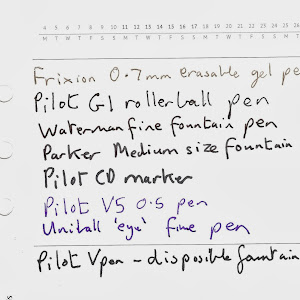 4 5 6 7 8 9 10 11 12 13 14 15 16 17 18 19 20 21 22 23 24 25 26 27 28 29 30 31
M T W T F S S M T W T F S S M T W T F S S M T W T F S S M T W
Frixion 0.7mm erasable gel pe
Pilot G1 rollerball pen
Waterman fine fountain pen
Parker Medium size fountain
Pilot CD marker
Pilot V5 0.5 pen
Uniball 'eye' fine pen
Pilot Vpen - disposible fountain